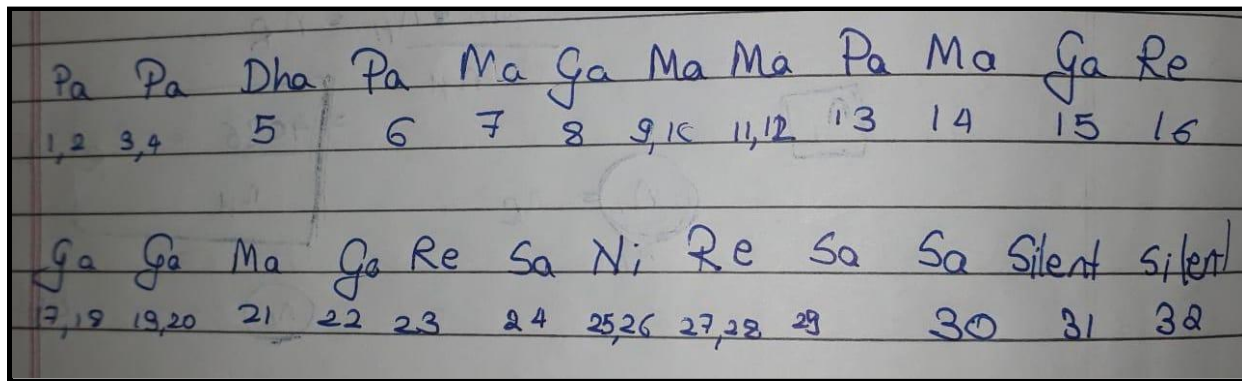 Pa Pa Dha Pa Ma Ga Ma Ma Pa Ma Ga Re
1,2 3,4 5 6 7 8 9,10 11,12 13 14 15 16
Ga Ga Ma Ga Re Sa Ni Re Sa Sa Silent Silent
17,18 19,20 21 22 23 24 25,26 27,28 29 30 31 32